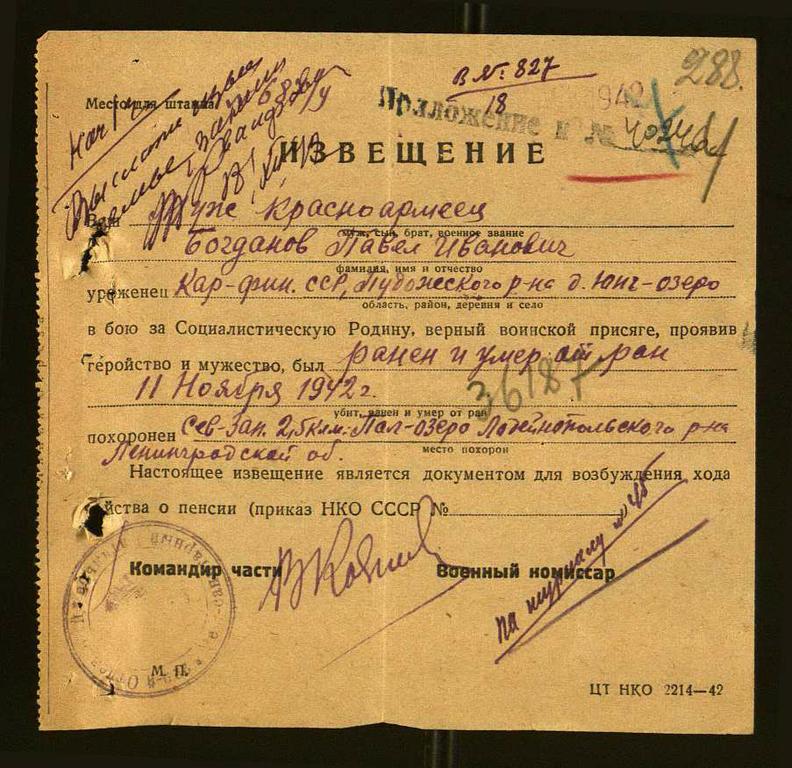 288.
В № 827
18 1942
Место для штампа
Приложение к №
ИЗВЕЩЕНИЕ
Ваш Муж красноармеец
муж, сын, брат, военное звание
Богданов Павел Иванович
фамилия, имя и отчество
уроженец Кар-фин. ССР, Пудожского р-на д. Юнг-озеро
область, район, деревня и село
в бою за Социалистическую Родину, верный воинской присяге, проявив
геройство и мужество, был ранен и умер от ран
11 Ноября 1942 г.
36187
убит, ранен и умер от ран
похоронен Сев-Зап. 2,5 клм. Пал-озеро Лодейнопольского р-на
место похорон
Ленинградской об.
Настоящее извещение является документом для возбуждения хода
йства о пенсии (приказ НКО СССР №
Командир части
Военный комиссар
по журналу №
М. П.
ЦТ НКО 2214—42